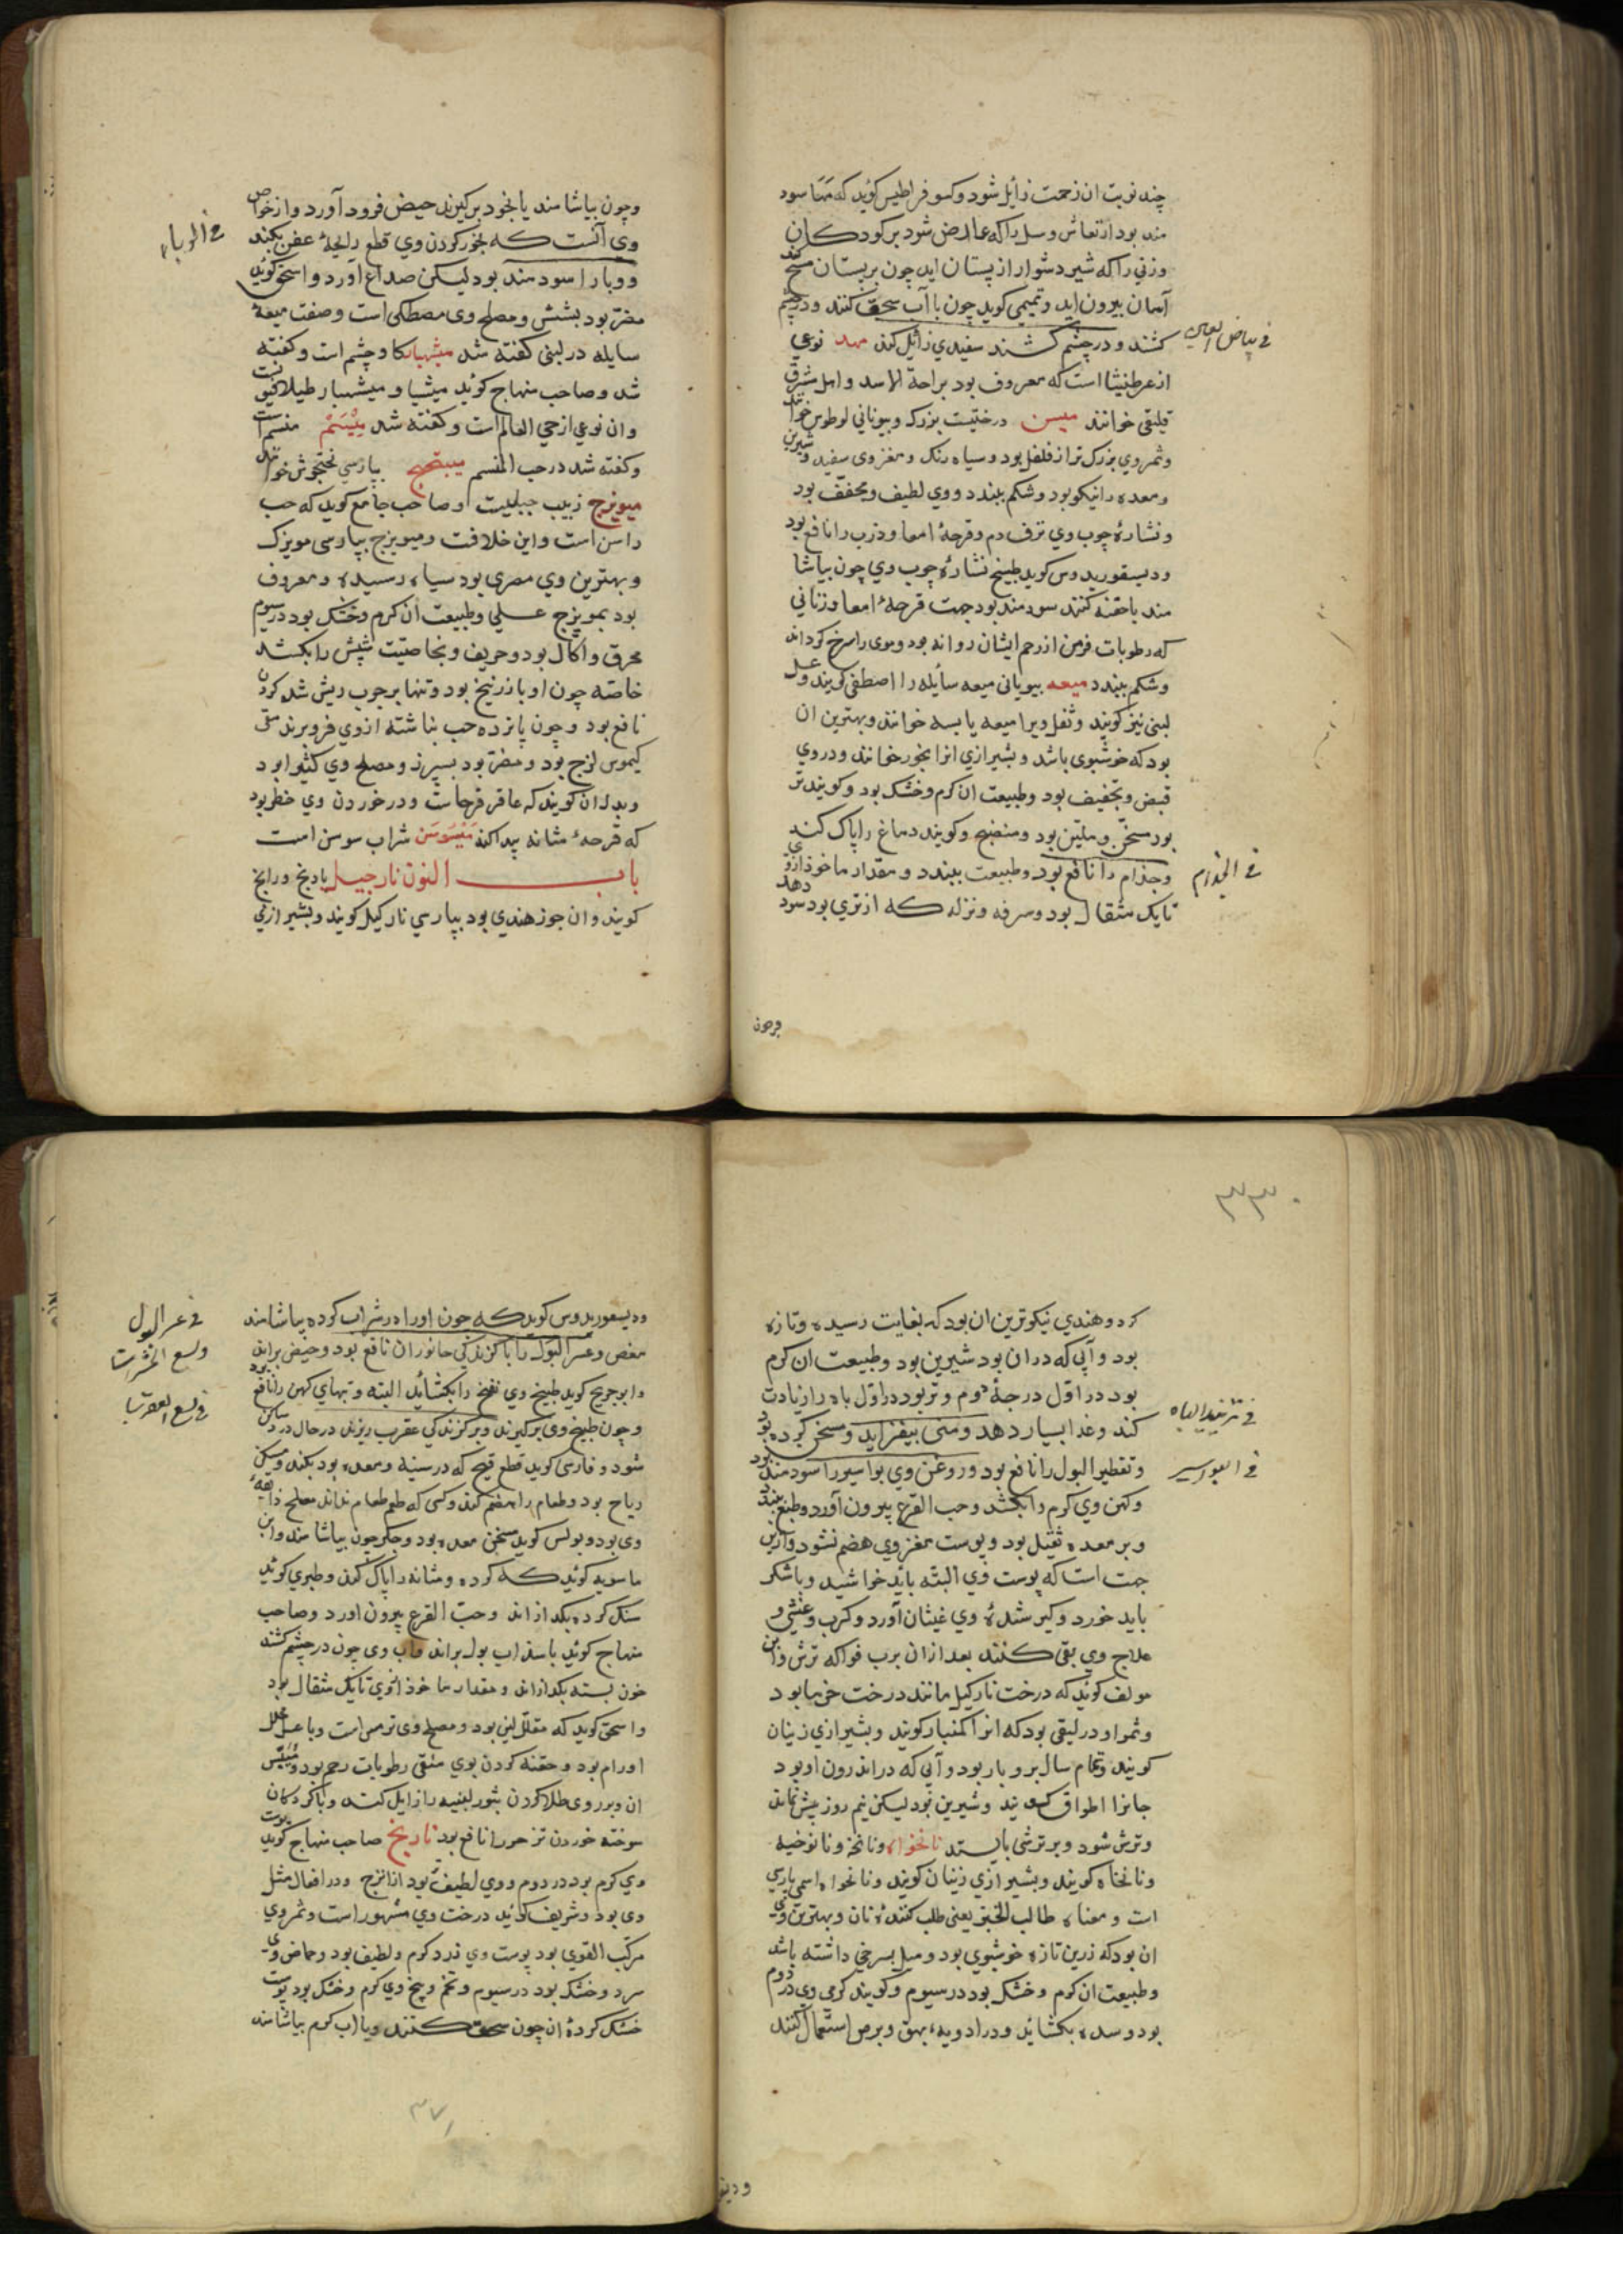 چند نوبت ان زحمت زایل شود وکسوفراطیس کوید که مها سود
مند بود ارتعاش وسل را که عارض شود بر کودکان
وزنی را که شیر دشوار از پستان اید چون بر پستان مسح کند
آسان بیرون اید وتمیمی کوید چون با آب سحق کنند ودر چشم
کشند ودر چشم کشند سفیدی زائل کند مهد نوعی
فی بیاض العین
از عرطنیثا است که معروف بود براحة الاسد واهل شرق
قیلقی خوانند میس درختیست بزرک وبیونانی لوطوس خوانند
وثمر وی بزرک تر از فلفل بود وسیاه رنک ومغز وی سفید وشیرین
ومعده را نیکو بود وشکم ببندد ووی لطیف ومجفف بود
ونشارهٔ چوب وی نزف دم وقرحهٔ امعا وذرب را نافع بود
ودیسقوریدوس کوید طبیخ نشارهٔ چوب وی چون بیاشا
مند یا حقنه کنند سودمند بود جهت قرحهٔ امعا وزنانی
که رطوبات فزمن از رحم ایشان روانه بود وموی را سرخ کرداند
وشکم ببندد میعه بیونانی میعه سایله را اصطفی کویند وعسل
لبنی نیز کویند وثفل ویرا میعه یابسه خوانند وبهترین ان
بود که خوشبوی باشد وبشیرازی انرا بخور خوانند ودر وی
قبض وتجفیف بود وطبیعت ان کرم وخشک بود وکویند تر
بود مسخن وملین بود ومنضج وکویند دماغ را پاک کند
وجذام را نافع بود وطبیعت ببندد ومقدار ماخوذ ازوی
فی الجذام
تا یک مثقال بود وسرفه ونزله که از تری بود سود دهد
وچون
وچون بیاشامند یا بخود برکیرند حیض فرود آورد واز خواص
وی آنست که بخور کردن وی قطع رایحهٔ عفن بکند
فی الوباء
ووبا را سودمند بود لیکن صداع آورد واسحق کوید
مضر بود بشش ومصلح وی مصطکی است وصفت میعهٔ
سایله در لبنی کفته شد میشبهار کاوچشم است وکفته
شد وصاحب منهاج کوید میشیا ومیشبهار طیلاقیون است
وان نوعی از حی العالم است وکفته شد میسم منسم است
وکفته شد در حب المنسم میبختج بپارسی نختجوش خوانند
میویزج زبیب جبلیست وصاحب جامع کوید که حب
راسن است واین خلافت ومیویزج بپارسی مویزک
وبهترین وی مصری بود سیاه رسیده ومعروف
بود بمویزج عسلی وطبیعت آن کرم وخشک بود در سیوم
محرق واکال بود وحریف وبخاصیت شپش را بکشد
خاصه چون او با زرنیخ بود وتنها بر جرب ریش شده کردن
نافع بود وچون پانزده حب بناشته ازوی فرو برند متی
کیموس لزج بود ومضر بود بسپرز ومصلح وی کثیرا بود
وبدل ان کویند که عاقرقرحاست ودر خوردن وی خطر بود
که قرحهٔ مثانه پیدا کند میسوسن شراب سوسن است
باب النون نارجیل بادنج ورانج
کویند وان جوز هندی بود بپارسی نارکیل کویند وبشیرازی
۳۳۰
کرد وهندی نیکوترین ان بود که بغایت رسیده وتازه
بود وآبی که در ان بود شیرین بود وطبیعت ان کرم
بود در اول درجهٔ دوم وتر بود در اول باه را زیادت
کند وغذا بسیار دهد ومنی بیفزاید ومسخن کرده بود
فی تزیید الباه
وتقطیر البول را نافع بود وروغن وی بواسیر را سودمند بود
فی البواسیر
وکهن وی کرم را بکشد وحب القرع بیرون آورد وطبع ببندد
وبر معده ثقیل بود وپوست مغز وی هضم نشود وازین
جهت است که پوست وی البته باید خراشید وباشکر
باید خورد وکیر شدهٔ وی غیثان آورد وکرب وغشی و
علاج وی بقی کنند بعد از ان برب فواکه ترش واین
مولف کوید که درخت نارکیل مانند درخت خرما بود
وثمر او در لیقی بود که انرا کمنبار کویند وبشیرازی زنیان
کویند وتمام سال بر وبار بود وآبی که در اندرون او بود
جانرا اطواق کویند وشیرین بود لیکن نیم روز بیش نماند
وترش شود وبر ترشی بایستد نانخواه ونانخه ونانوخیه
ونانخاه کویند وبشیرازی زنیان کویند ونانخواه اسمی پارسی
است ومعناه طالب الخبز یعنی طلب کنندهٔ نان وبهترین وی
ان بود که زرین تازه خوشبوی بود ومیل بسرخی داشته باشد
وطبیعت ان کرم وخشک بود در سیوم وکویند کرمی وی در دوم
بود وسده بکشاید ودر ادویهٔ بهق وبرص استعمال کنند
ودیسقوریدوس کوید که چون او را در شراب کرده بیاشامند
فی عسر البول
مغص وعسر البول را با کزندکی جانوران نافع بود وحیض براند
ولسع الحشرات
وابو جریج کوید طبیخ وی نفخ را بکشاید البته وتبهای کهن را نافع بود
فی لسع العقرب
وچون طبیخ وی برکیرند وبر کزندکی عقرب ریزند در حال درد ساکن
شود وفارسی کوید قطع قیح که در سینه ومعده بود بکند ومسکن
ریاح بود وطعام را هضم کند وکسی که طعم طعام نداند مصلح ذائقهٔ
وی بود وبولس کوید مسخن معده بود وجکر چون بیاشامند وابن
ماسویه کوید که کرده ومثانه را پاک کند وطبری کوید
سنک کرده بکدازاند وحب القرع بیرون اورد وصاحب
منهاج کوید با سداب بول براند وآب وی چون در چشم کشند
خون بسته بکدازاند ومقدار ماخوذ ازوی تا یک مثقال بود
واسحق کوید که مقلل لبن بود ومصلح وی ترمس است وبا عسل محلل
اورام بود وحقنه کردن بوی منقی رطوبات رحم بود
ان وبر روی طلا کردن بثور لبنیه را زایل کند
سوخته خوردن نافع بود نارنج صاحب منهاج کوید پوست
وی کرم بود در دوم ووی لطیف بود از اترج ودر افعال مثل
وی بود وشریف کوید درخت وی مشهور است وثمر وی
مرکب القوی بود پوست وی زرد کرم ولطیف بود وحماض وی
سرد وخشک بود در سیوم وتخم وبیخ وی کرم وخشک بود پوست
خشک کردهٔ ان چون سحق کنند وبا آب کرم بیاشامند
۳۷۱